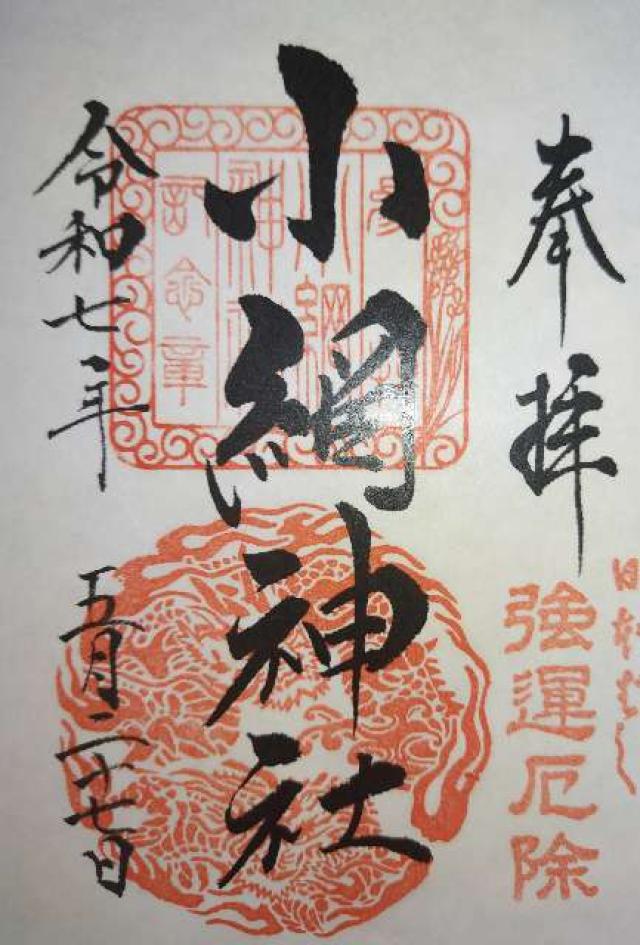 奉拝
日本橋
強運厄除
小網神社
小網
神社
記念章
令和七年
五月二十七日